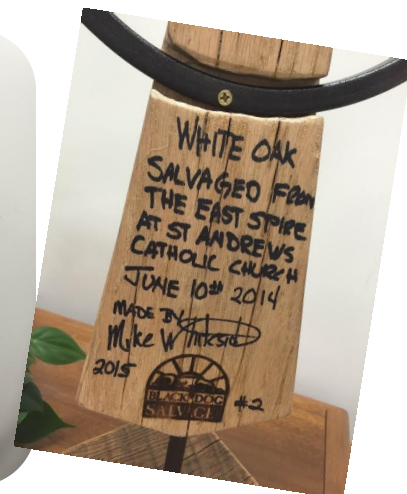 WHITE OAK
SALVAGED FROM
THE EAST SPIRE
AT ST ANDREWS
CATHOLIC CHURCH
JUNE 10th 2014
MADE BY
Mike W
2015
BLACK DOG
SALVAGE
#2